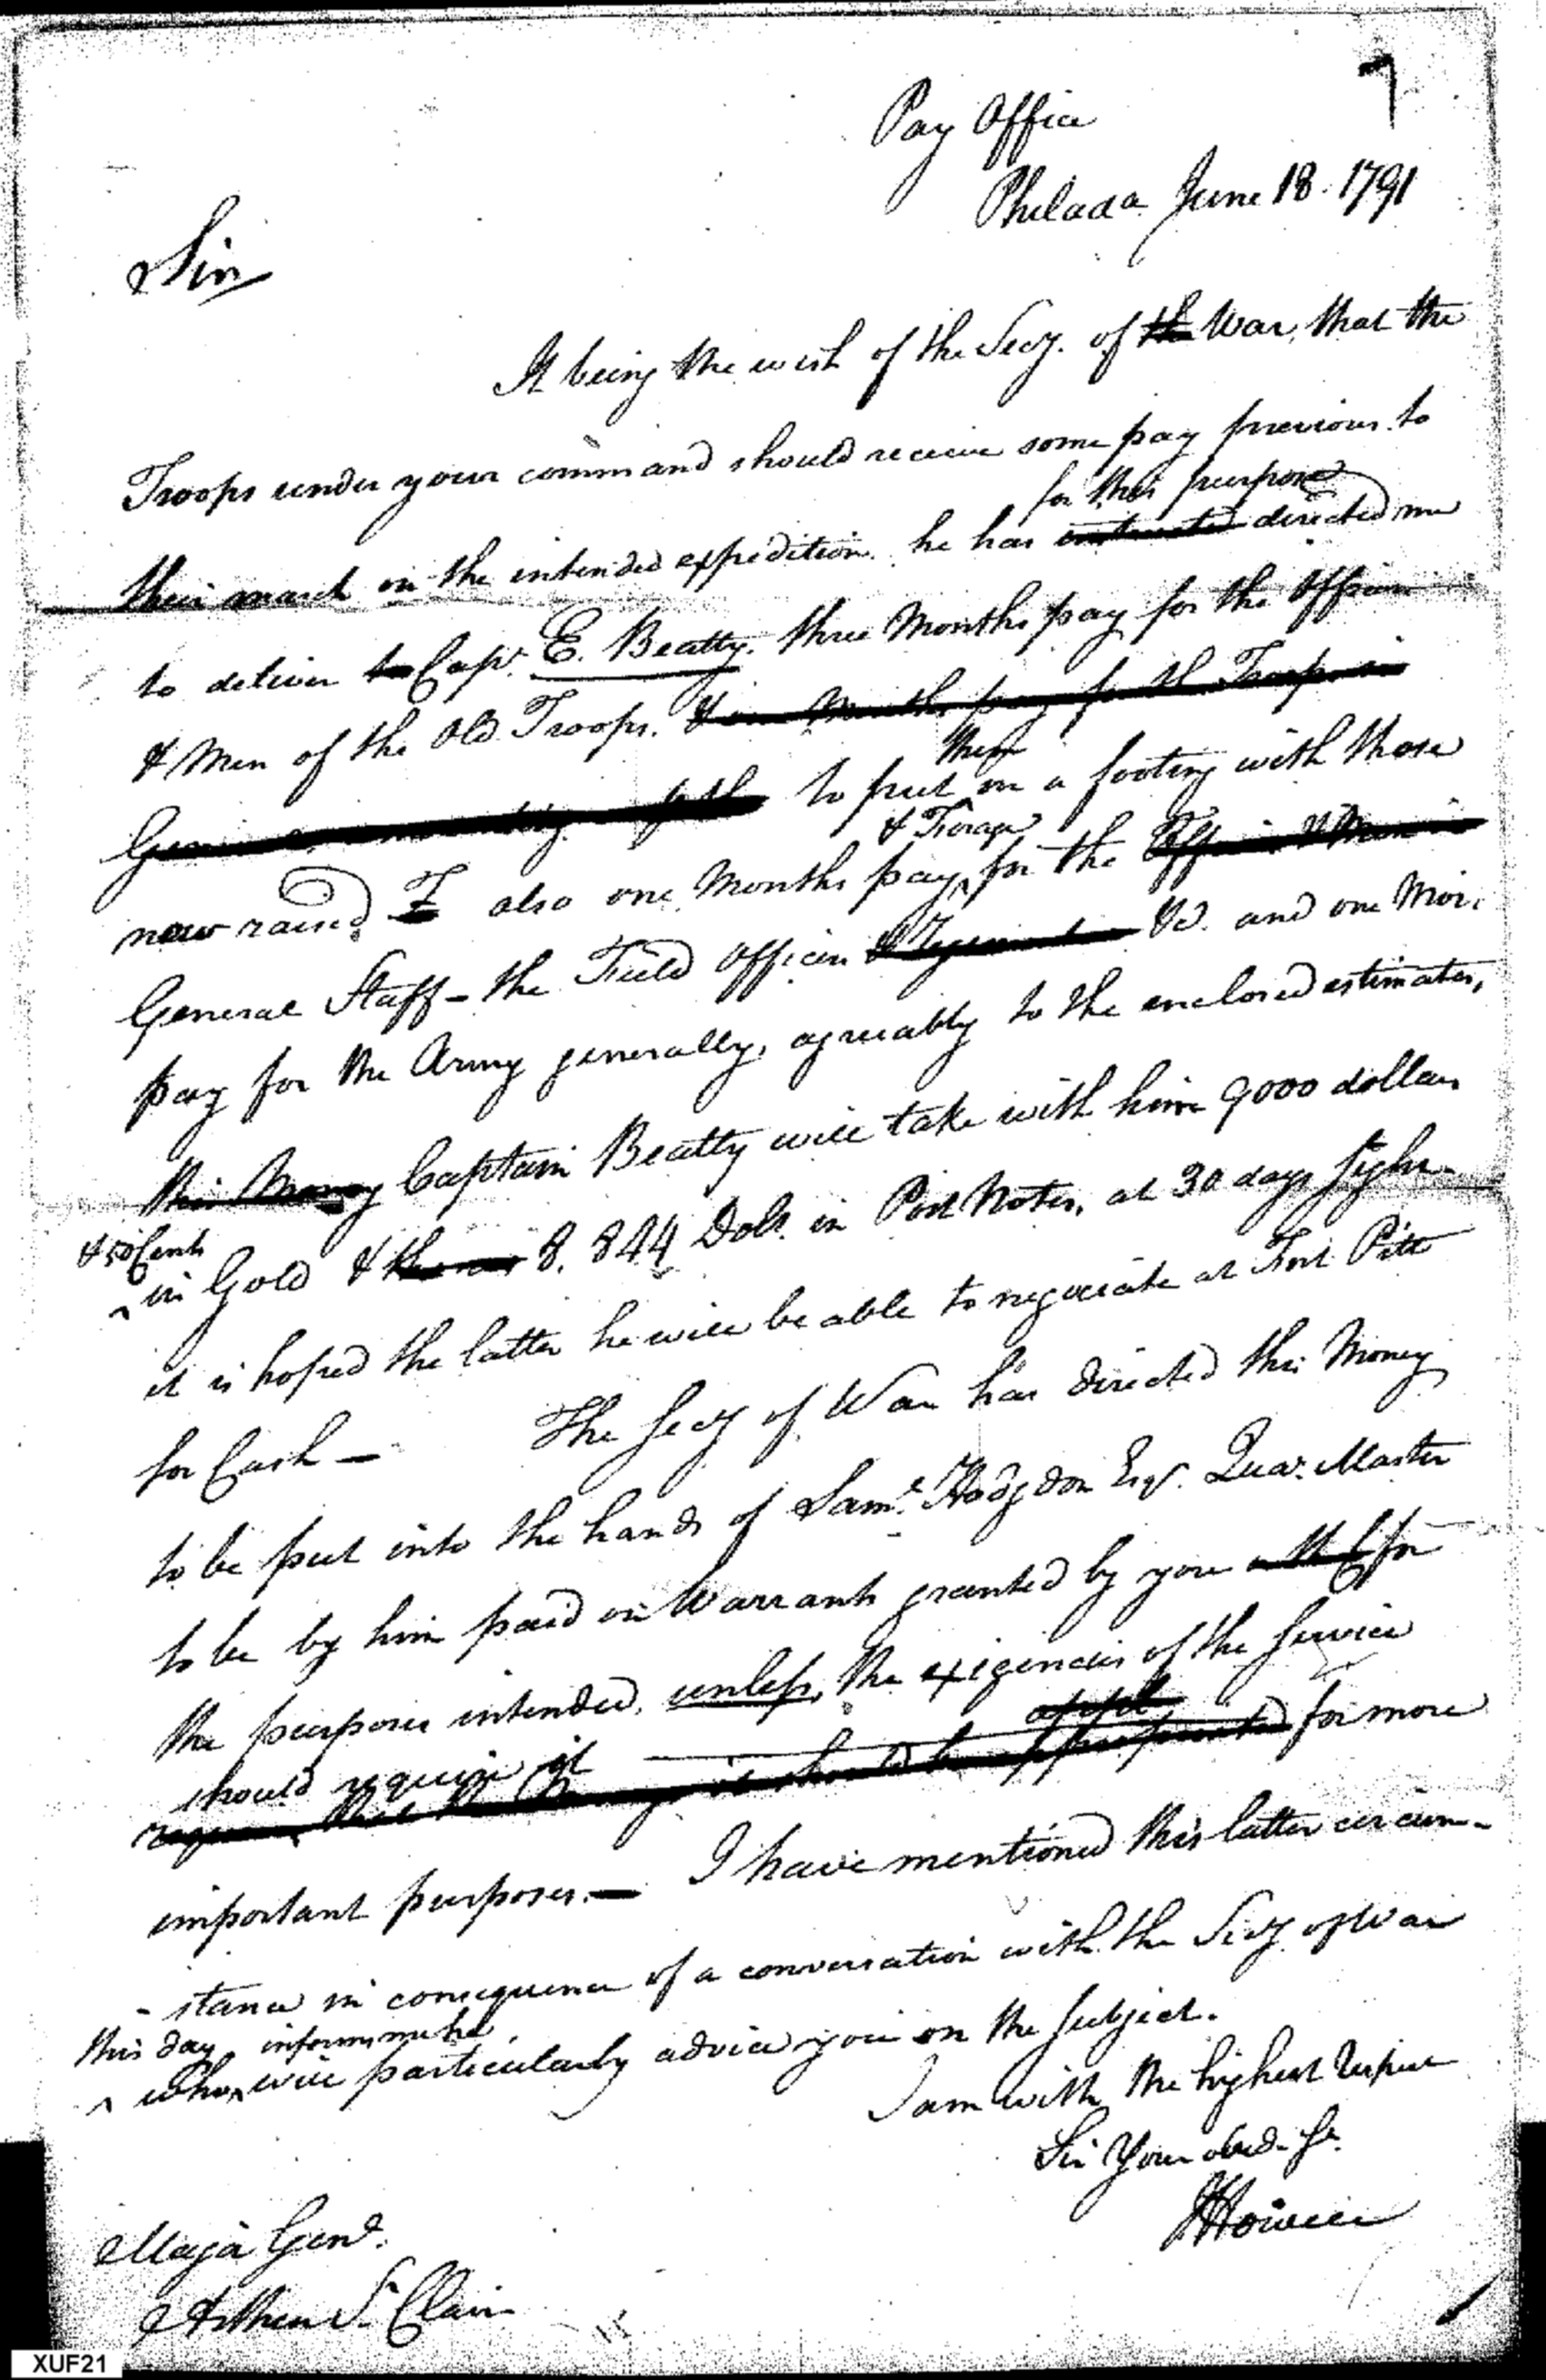 7
Pay Office
Philada June 18. 1791
Sir
It being the wish of the Secy. of the War, that the
Troops under your command should receive some pay previous to
for this purpose
their march on the intended expedition. he has instructed directed me
to deliver to Capt. E. Beatty. three Months pay for the Officers
& Men of the Old Troops. & one Months pay for the Troops in
them
General to put on a footing with those
& Forage
now raised. I also one Months pay, for the Officers & Men in
General Staff - the Field Officers &c. and one Mos.
pay for the Army generally, agreeably to the enclosed estimates,
this Money Captain Beatty will take with him 9000 dollars
& 50 Cents
in Gold & 8.844 Dolls. in Post Notes, at 30 days sight.
it is hoped the latter he will be able to negociate at Fort Pitt
for Cash — The Secy of War has directed this Money
to be put into the hands of Saml. Hodgdon Esqr. Quar. Master
to be by him paid on Warrants granted by you for
the purposes intended, unless, the exigencies of the Service
should require it
require that the Money should be appropriated for more
important purposes. — I have mentioned this latter circum-
- stance in consequence of a conversation with the Secy of War
this day informs me he
who will particularly advice you on the subject.
I am with the highest Respect
Sir Your obed. St.
J Howell
Major Genl.
Arthur St. Clair
XUF21